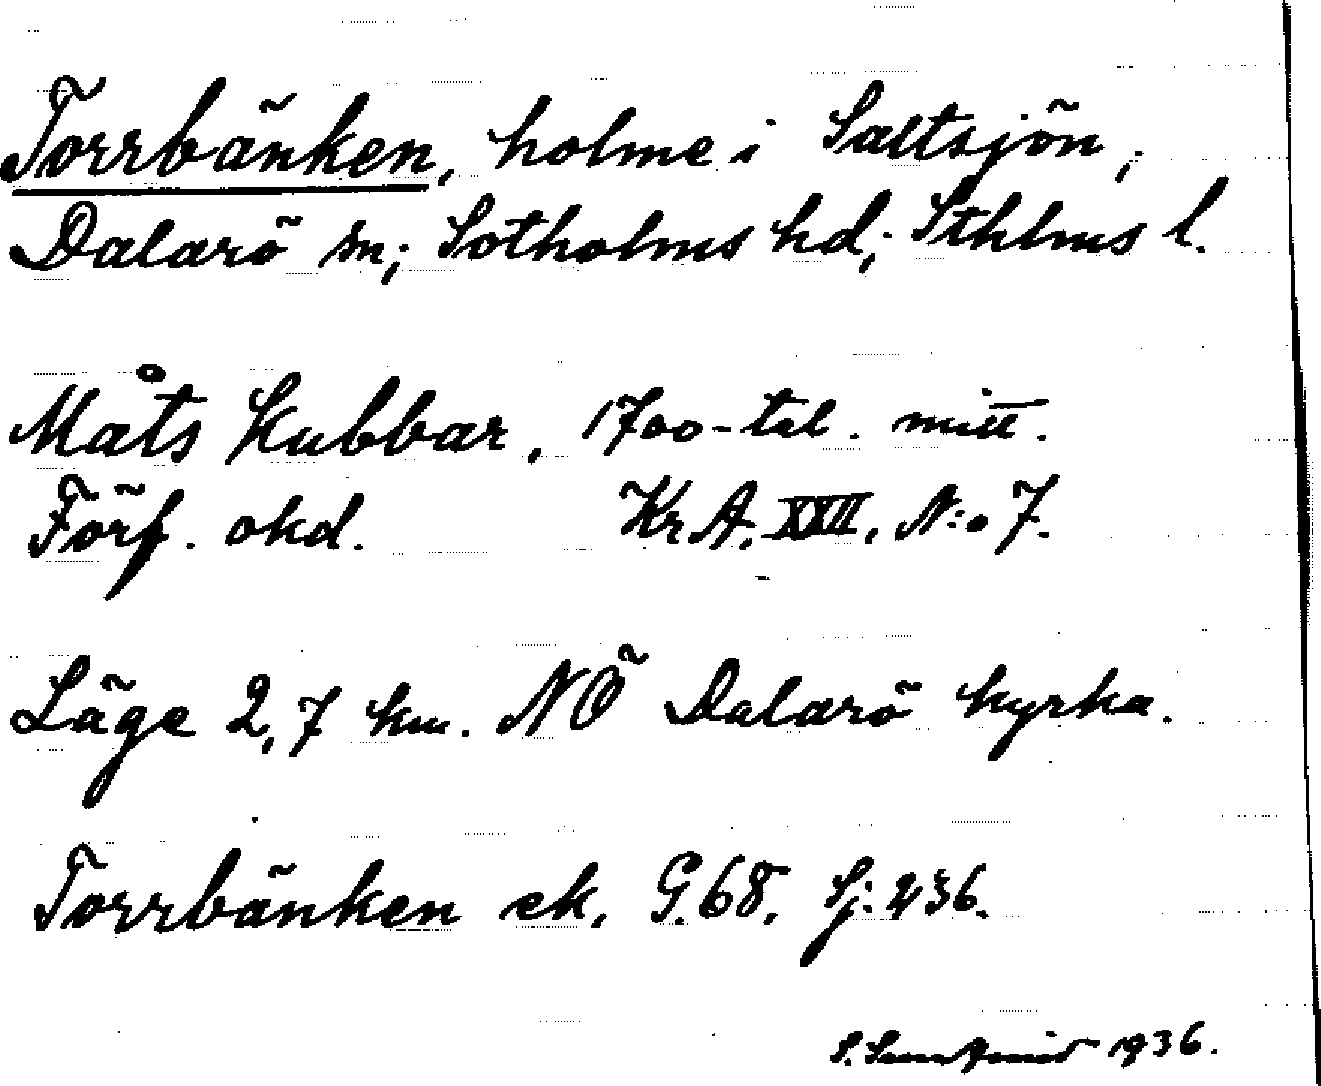 Torrbänken, holme i Saltsjön,
Dalarö sn; Sotholms hd; Sthlms l.
Måts Kubbar, 1700-tal. mitt.
Förf. okd. Kr.A. XXII. N:o 7.
Läge 2,7 km. NÖ Dalarö kyrka.
Torrbänken ek. G.68. Sj: 236.
S. 1936.